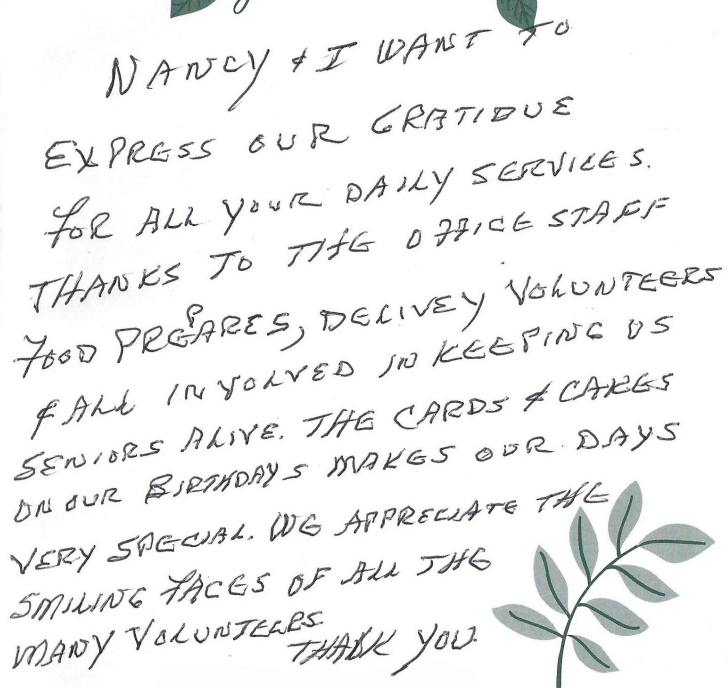 NANCY & I WANT TO
EXPRESS OUR GRATIDUE
FOR ALL YOUR DAILY SERVICES.
THANKS TO THE OFFICE STAFF
FOOD PREPARES, DELIVEY VOLUNTEERS
& ALL INVOLVED IN KEEPING US
SENIORS ALIVE. THE CARDS & CAKES
ON OUR BIRTHDAYS MAKES OUR DAYS
VERY SPECIAL. WE APPRECIATE THE
SMILING FACES OF ALL THE
MANY VOLUNTEERS
THANK YOU.